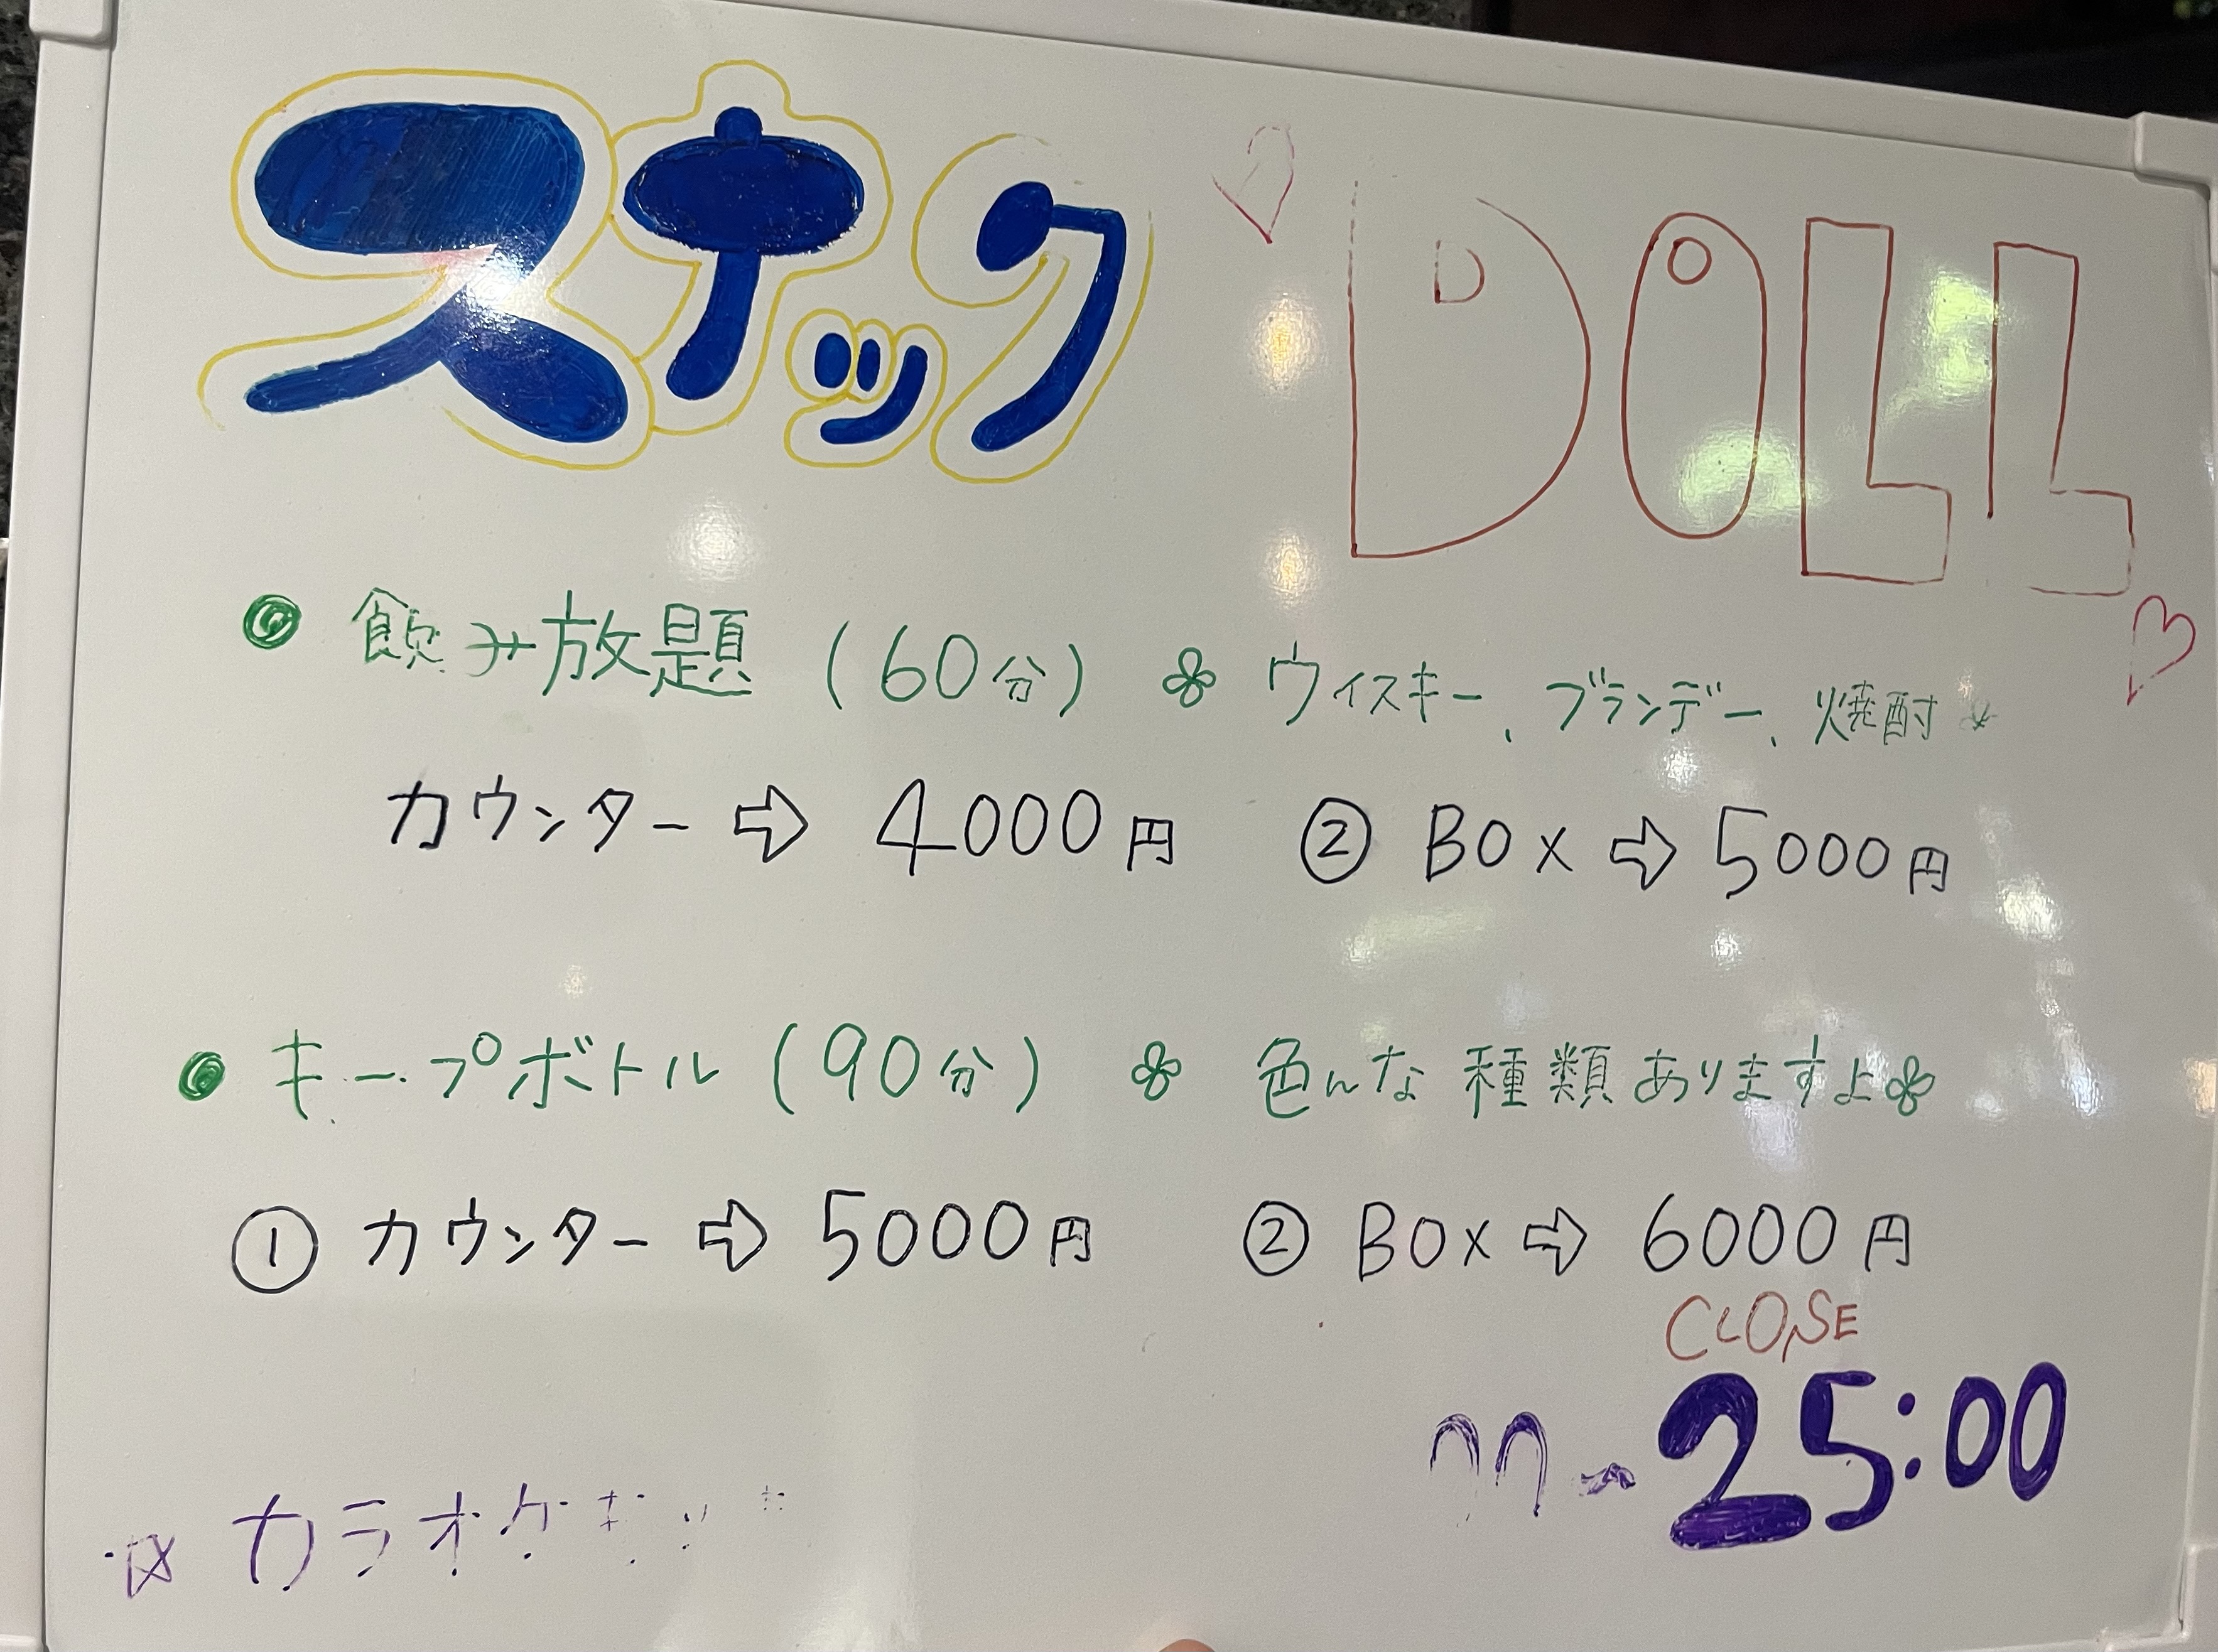 スナック DOLL
飲み放題 (60分) ウィスキー、ブランデー、焼酎
カウンター ⇨ 4000円 ② BOX ⇨ 5000円
キープボトル (90分) 色んな種類ありますよ
① カウンター ⇨ 5000円 ② BOX ⇨ 6000円
CLOSE
25:00
カラオケ